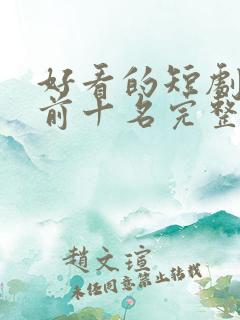 好看的短劇
前十名完整
趙文瑄
未經同意禁止轉載